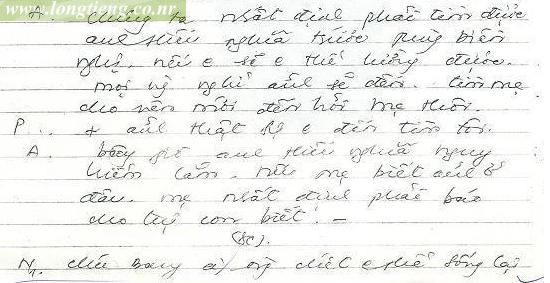 www.longtieng.co.nr
A. Chúng ta nhất định phải tìm được
anh Hiếu nghĩa trước phùng biên
nghị. nếu e sẽ e thể lường được.
mọi ng nghĩ anh sẽ đến tìm mẹ
cho nên mới đến hỏi mẹ thôi.
P... + anh thật sự e đến tìm tôi.
A. bây giờ anh Hiếu nghĩa nguy
hiểm lắm. nếu mẹ biết anh ở
đâu. mẹ nhất định phải báo
cho tụi con biết! —
(8C).
N1. chú bang a) ng chết e thể sống lại